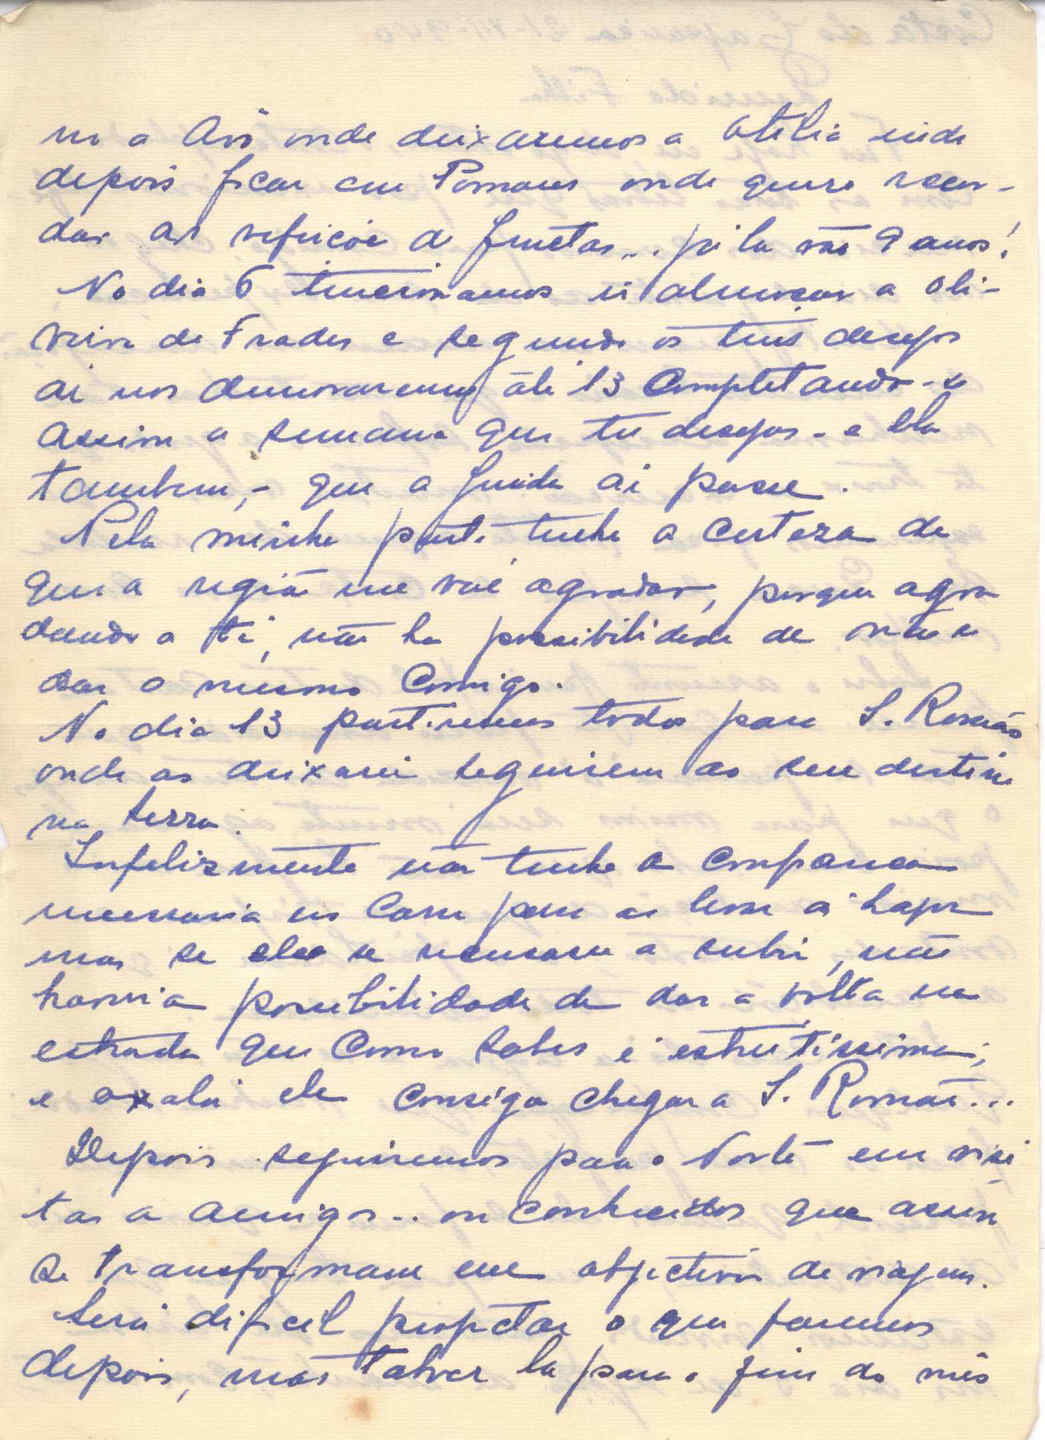 mo a Avô onde deixaremos a Otilia indo
depois ficar em Pomares onde quero recor-
dar as refeições de fructas... já la vão 9 anos!
No dia 6 tencionamos ir almoçar a Oli-
veira de Frades e segundo os teus desejos
ai nos demoraremos até 13 completando-se
assim a semana que tu desejas - e ela
tambem, - que a Guida ai passe.
Pela minha parte tenho a certeza de
que a região me vai agradar, porque agra
dando a ti, não ha possibilidade de não se
dar o mesmo comigo.
No dia 13 partiremos todos para S. Romão
onde as deixarei seguirem ao seu destino
na serra.
Infelizmente não tenho a confiança
necessaria no carro para as levar á Lagoa
mas se ele se recusasse a subir, não
haveria possibilidade de dar a volta na
estrada que como sabes é estreitissima;
e oxalá ele consiga chegar a S. Romão...
Depois seguiremos para o Norte em visi
tas a amigos... ou conhecidos que assim
se transformam em objectivos de viagem.
Será dificil projectar o que faremos
depois, mas talvez la para o fim do mês